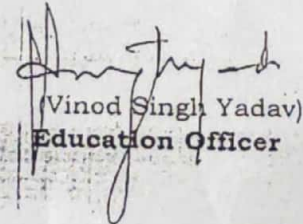 (Vinod Singh Yadav)
Education Officer